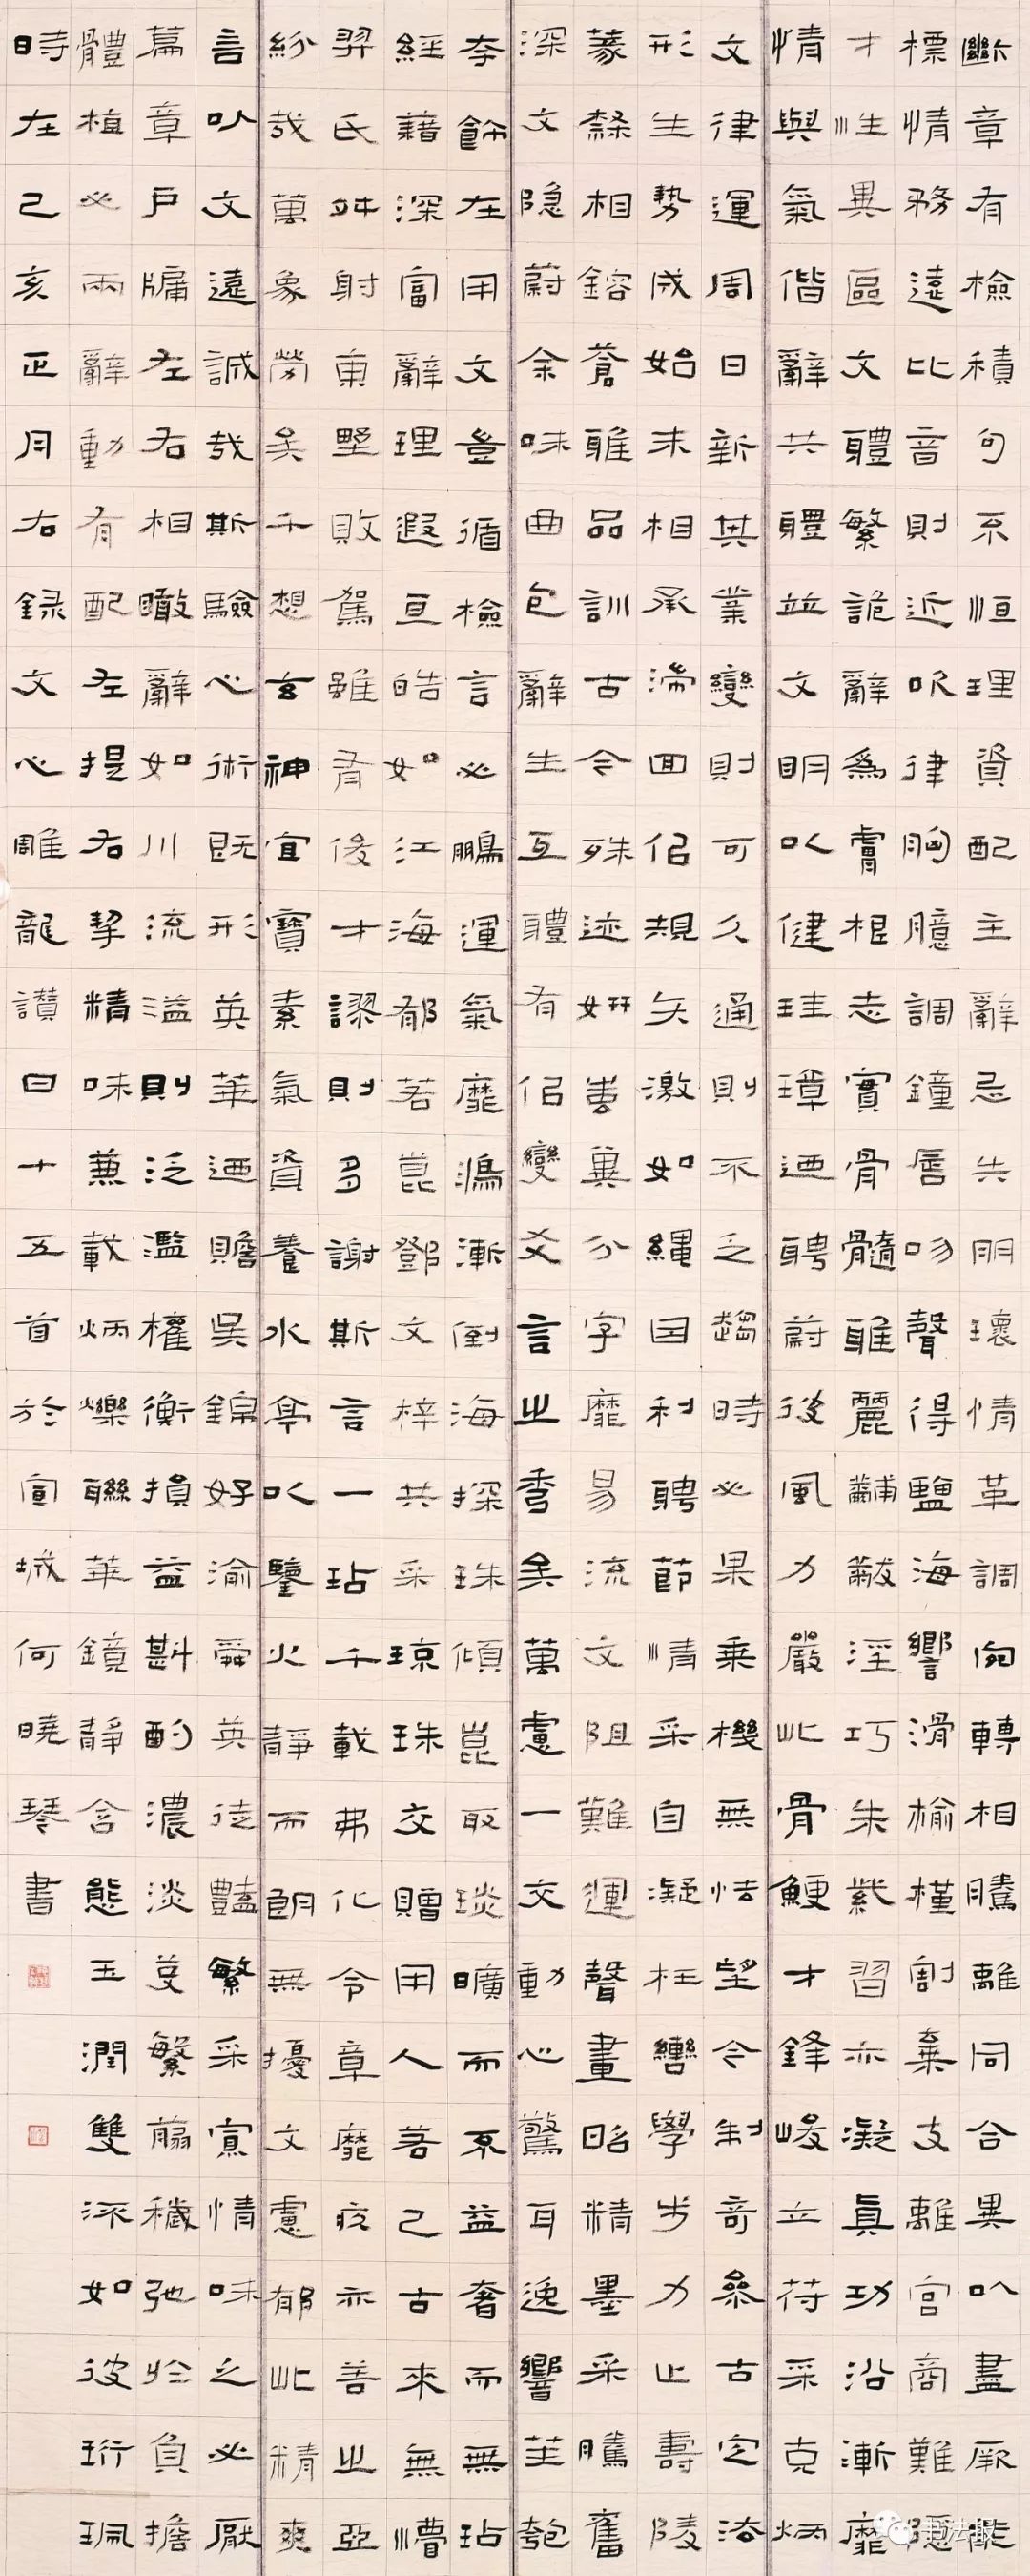 斷章有檢積句不恒理資配主辭忌失朋環情革調宛轉相騰離同合異以盡厥能
標情務遠比音則近吹律胸臆調鐘唇吻聲得鹽梅響滑榆槿割棄支離宮商難隱
才性異區文體繁詭辭為膚根志實骨髓雅麗黼黻淫巧朱紫習亦凝真功沿漸靡
情與氣偕辭共體並文明以健珪璋迺聘蔚彼風力嚴此骨鯁才鋒峻立符采克炳
文律運周日新其業變則可久通則不乏趨時必果乘機無怯望今制奇參古定法
形生勢成始末相承湍回似規矢激如繩因利騁節情采自凝枉轡學步力止壽陵
篆隸相鎔蒼雅品訓古今殊迹妍媸異分字靡易流文阻難運聲畫昭精墨采騰奮
深文隱蔚余味曲包辭生互體有似變爻言之秀矣萬慮一交動心驚耳逸響笙匏
夸飾在用文豈循檢言必鵬運氣靡鴻漸倒海探珠傾崑取琰曠而不溢奢而無玷
經籍深富辭理遐亘皓如江海郁若崑鄧文梓共采瓊珠交贈用人若己古來無懵
羿氏舛射東野敗駕雖有俊才謬則多謝斯言一玷千載弗化令章靡疚亦善之亞
紛哉萬象勞矣千想玄神宜寶素氣資養水停以鑒火靜而朗無擾文慮郁此精爽
言以文遠誠哉斯驗心術既形英華迺贍吳錦好渝舜英徒豔繁采寡情味之必厭
篇章戶牖左右相瞰辭如川流溢則泛濫權衡損益斟酌濃淡芟繁翦穢弛於負擔
體植必兩辭動有配左提右挈精味兼載炳爍聯華鏡靜含態玉潤雙流如彼珩珮
時在己亥正月右錄文心雕龍讚曰十五首於宣城何曉琴書
书法报